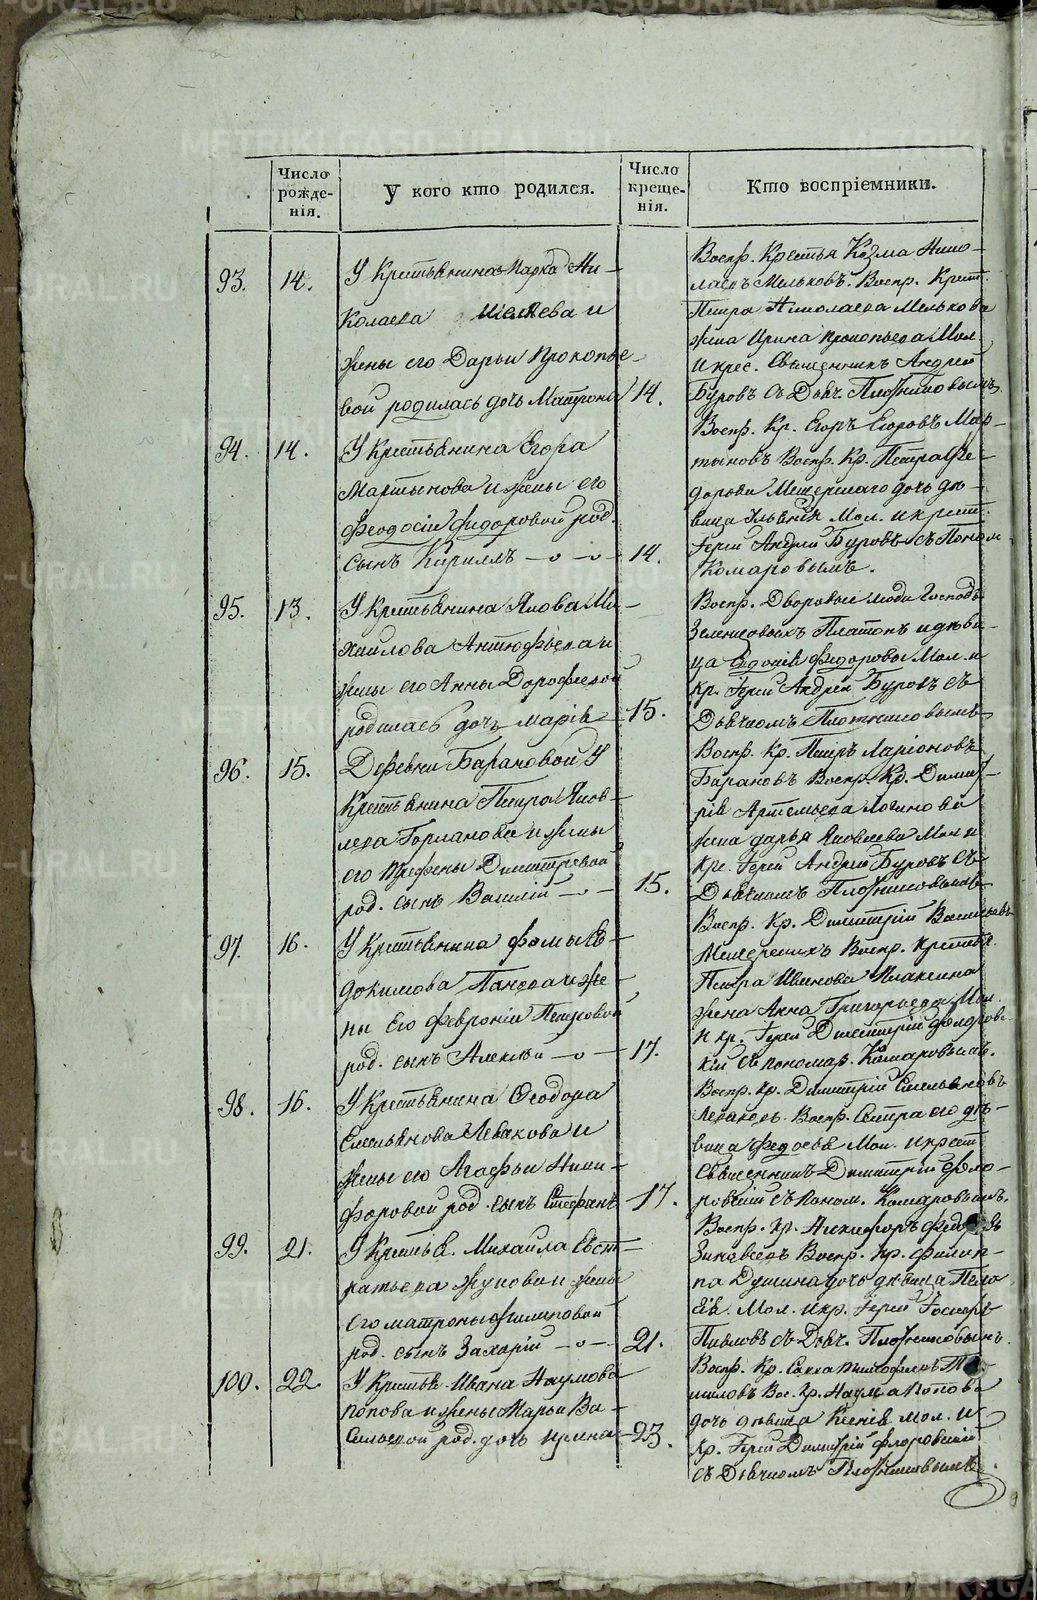 METRIKI.GASO-URAL.RU
Число рожде-нія.
У кого кто родился.
Число креще-нія.
Кто воспріемники.
93.
14.
У Крестьянина Марка Ни-
колаева Шеляева и
жены его Дарьи Прокопье-
вой родилась дочь Матрона
14.
Воспр. Крестья Козма Нико-
лаевъ Мельковъ. Воспр. Крест.
Петра Николаева Мелькова
жена Ирина Прокопьева Мол.
и крес. Священникъ Андрей
Буровъ съ Дьяч. Плотниковымъ
94.
14.
У Крестьянина Егора
Мартынова и жены его
Феодосіи Фидоровой род.
сынъ Кириллъ
14.
Воспр. Кр. Егоръ Егоровъ Мар-
тыновъ Воспр. Кр. Петра Фе-
дорова дочь дѣ-
вица Мол. и крест.
Іерей Андрей Буровъ съ Поном
Комаровымъ.
95.
13.
У Крестьянина Якова Ми-
хайлова и
жены его Анны Дорофеевой
родилась дочь Марія
15.
Воспр. Дворовые люди Господъ
Платонъ и дѣви-
ца Фидорова Мол. и
кр. Іерей Андрей Буровъ съ
Дьячкомъ Плотниковымъ
96.
15.
Деревни Барановой У
Крестьянина Петра Яков-
лева и жены
его Димитревой
род. сынъ Василій
15.
Воспр. Кр. Петръ Ларіоновъ
Барановъ Воспр. Кр. Димит-
рія Артемьева Логинова
жена Дарья Яковлева Мол и
кр. Іерей Андрей Буровъ съ
Дьячкомъ Плотниковымъ
97.
16.
У Крестьянина Фомы Ев-
докимова и же-
ны его Февроніи Петровой
род. сынъ Алексѣй
17.
Воспр. Кр. Димитрій Васильевъ
Воспр. Крестья.
Петра Иванова
жена Анна Григорьева Мол.
и кр. Іерей Димитрій Флоровс-
кій съ пономар. Комаровымъ.
98.
16.
У Крестьянина Феодора
Емельянова Левакова и
жены его Агафьи Ники-
форовой род. сынъ Стефанъ
17.
Воспр. Кр. Димитрій Емельяновъ
Леваковъ. Воспр. Сестра его дѣ-
вица Федосья Мол. и крест
Священникъ Димитрій Фло-
ровскій съ поном. Комаровымъ.
99.
21.
У Крестья. Михаила Евст-
ратьева и жены
его Матроны Филиповой
род. сынъ Захарій
21.
Воспр. Кр. Никифоръ
Воспр. Кр. Филип-
па дочь дѣвица Пела
гія. Мол. и кр. Іерей
Павловъ съ Дьяч. Плотниковымъ.
100.
22
У Крестья. Ивана Наумова
Попова и жены Марьи Ва-
сильевой род. дочь Ирина
23.
Воспр. Кр. Савва
Вос. Кр. Наума Попова
дочь дѣвица Ксенія мол. и
кр. Іерей Димитрій Флоровскій
съ Дьячкомъ Плотниковымъ.